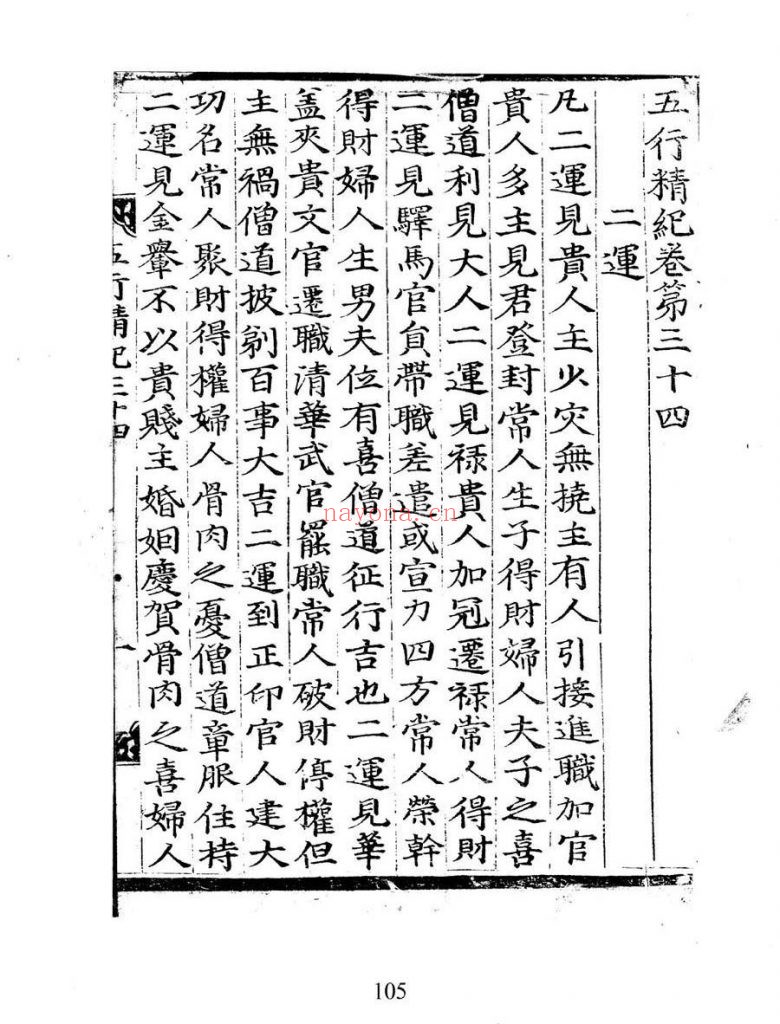 五行精紀卷第三十四
二運
凡二運見貴人主少灾無撓主有人引接進職加官
貴人多主見君登封常人生子得財婦人夫子之喜
僧道利見大人二運見禄貴人加冠遷禄常人得財
二運見驛馬官貟帶職差遣或宣力四方常人榮幹
得財婦人生男夫位有喜僧道征行吉也二運見華
盖夾貴文官遷職清華武官罷職常人破財停權但
主無禍僧道披剃百事大吉二運到正印官人建大
功名常人聚財得權婦人骨肉之憂僧道章服住持
二運見金轝不以貴賤主婚姻慶賀骨肉之喜婦人
五行精紀三十四
一
nayona.cn
105